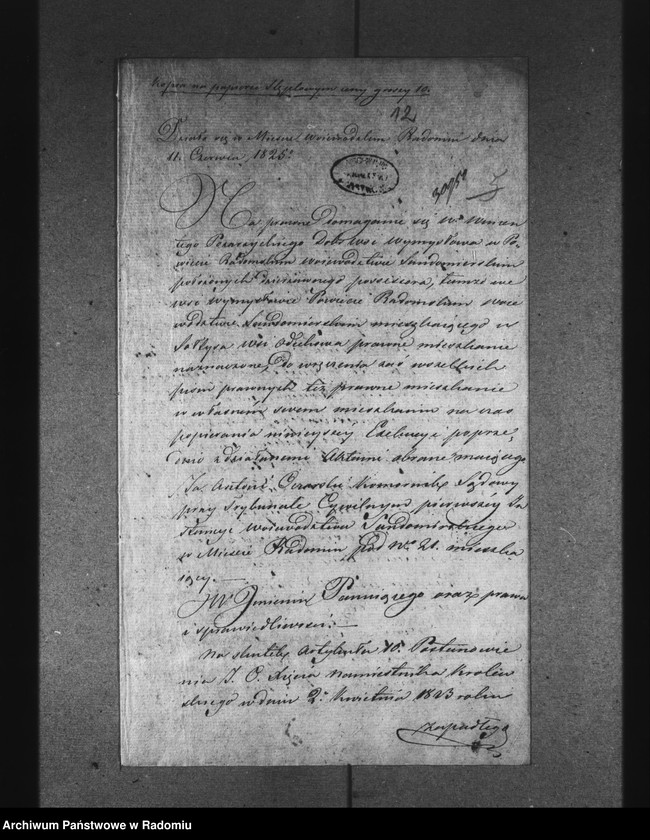 Kopia na papierze Stęplowym ceny groszy 10.
12
Działo się w Mieście Wojewódzkim Radomiu dnia
11. Czerwca 1825.
Na prawne Domaganie się W° Wincen
tego Dóbr wsi Wymysłowa w Po,
wiecie Radomskim Województwie Sandomierskim
położonych dzierżawnego possessora, tamże we
wsi Wymysłowie Powiecie Radomskim Woje
wództwie Sandomierskim mieszkającego w
wsi prawne mieszkanie
naznaczone, do wręczenia zaś wszelkich
pism prawnych też prawne mieszkanie
w własném swem mieszkaniu na czas
popierania niniejszey Exekucyi poprze,
dnio zdziałanemi Aktami obrane maiącego
Ja Antoni Komornik Sądowy
przy Trybunale Cywilnym pierwszéy In
stancyi Województwa Sandomierskiego
w Mieście Radomiu pod Nr 21. mieszka
iący.
W Imieniu Panuiącego oraz prawa
i sprawiedliwości
Na skutek Artykułu 10. Postanowie
nia J. O. Xięcia Namiestnika Królew
skiego w dniu 2. Kwietnia 1823 roku
zapadłego
Archiwum Państwowe w Radomiu